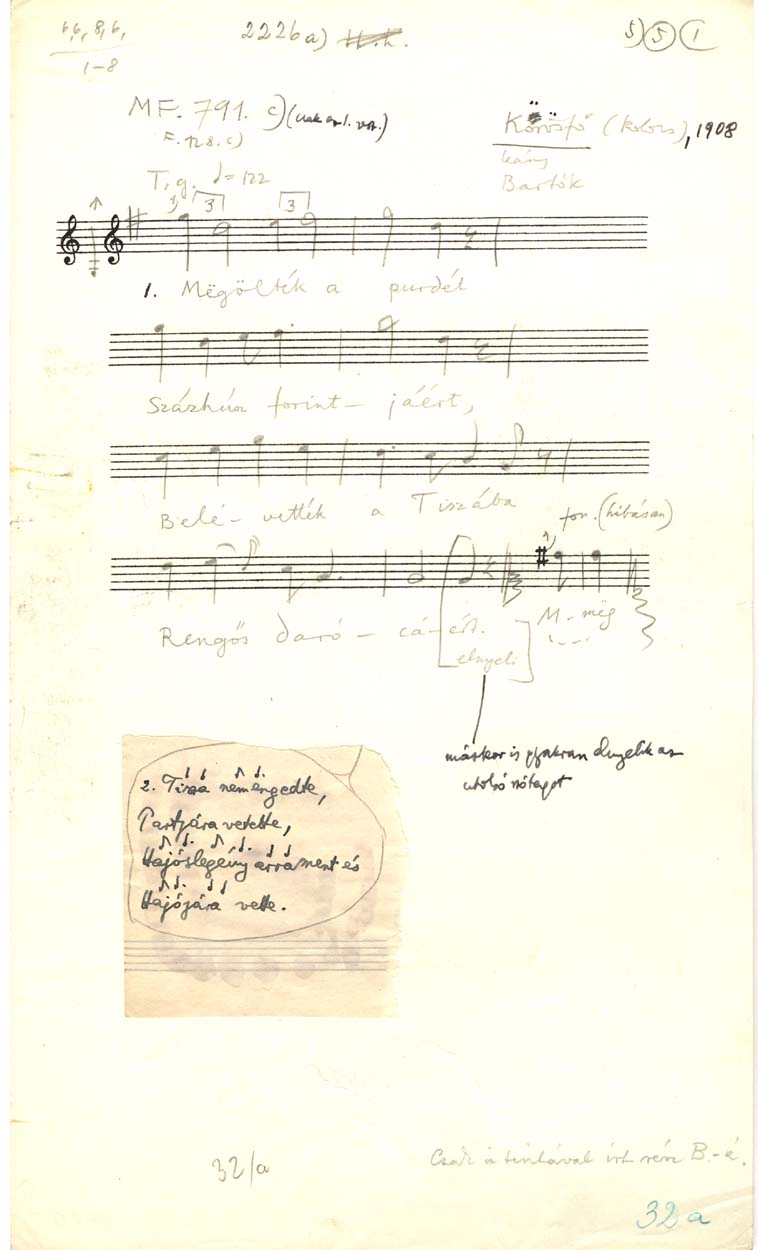 6,6, 8,6,
1-8
2226a)
5) 5 1
MF. 791. c) (csak az 1. vsz.)
F. 728. c)
Kőrösfő (Kolozs), 1908
leány
Bartók
T. g. ♩= 122
3 3
1. Mëgölték a purdét
Százhúsz forint- jáért,
Belé- vették a Tiszába
fon. (hibásan)
Rengős daró- cá- ért.
M- mëg
elnyeli
máskor is gyakran elnyelik az
utolsó szótagot
2. Tisza nem engedte,
Partjára vetette,
Hajóslegény arra ment és
Hajójára vette.
32/a
Csak a tintával írt rész B.-é.
32a